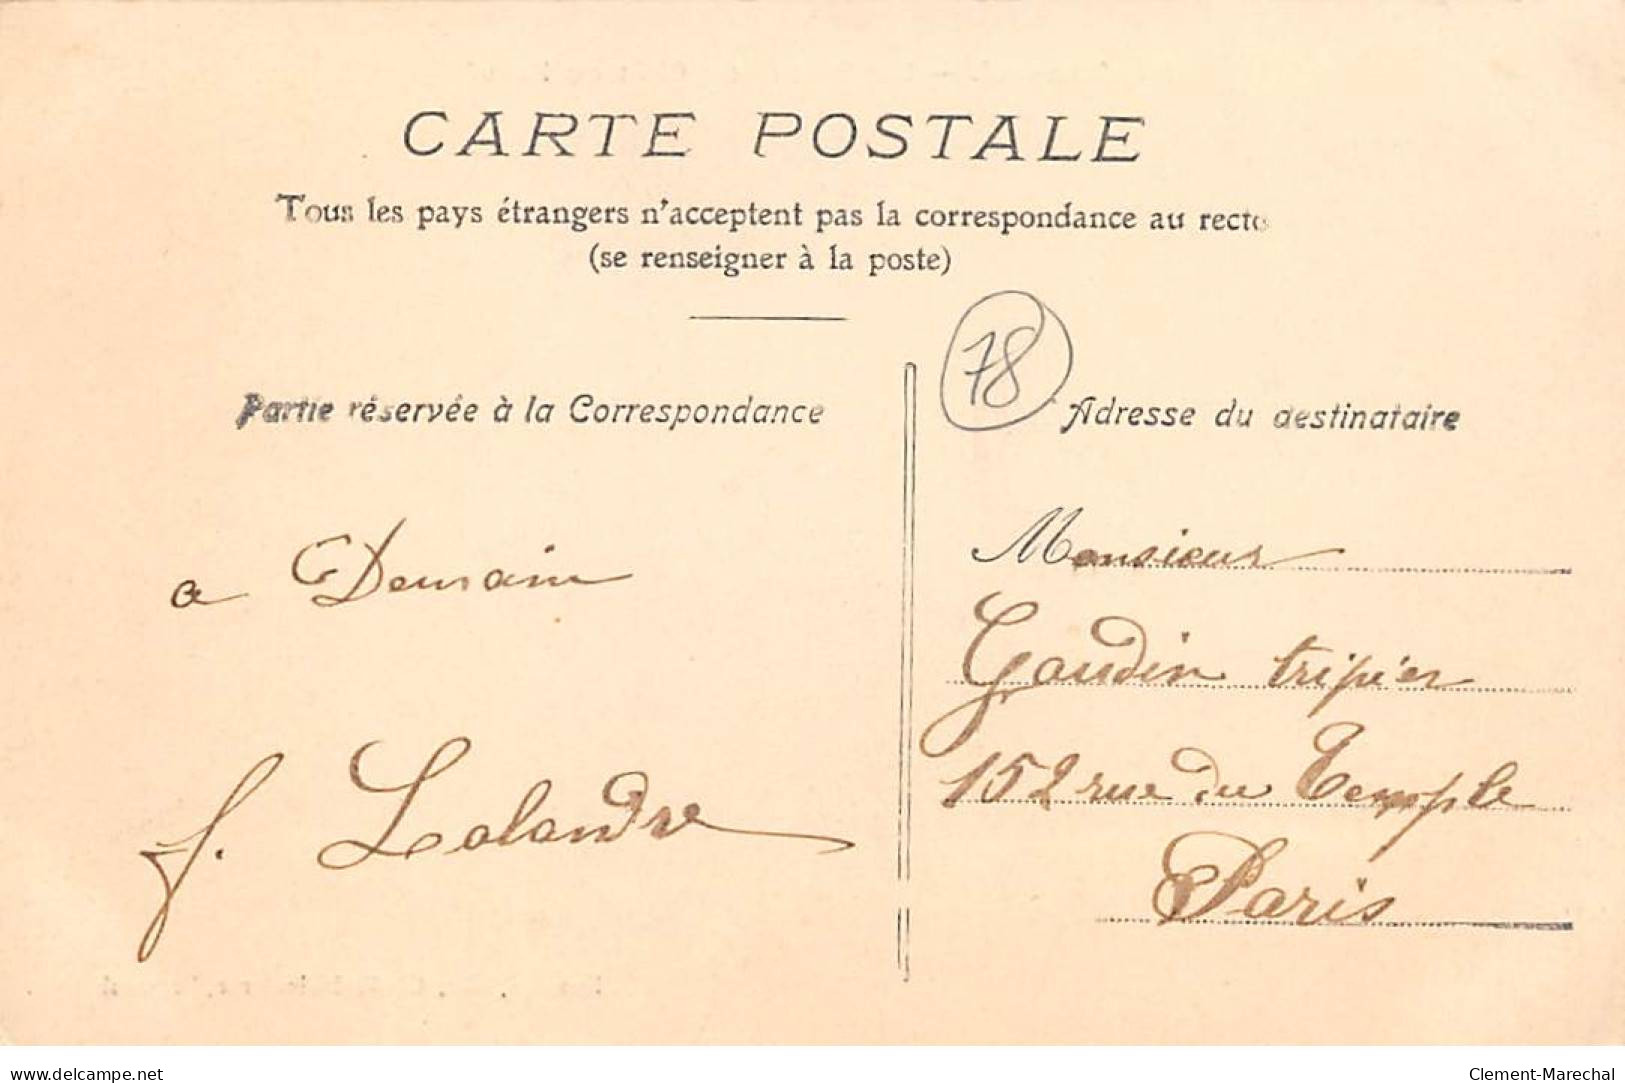 CARTE POSTALE
Tous les pays étrangers n'acceptent pas la correspondance au recto
(se renseigner à la poste)
78
Partie réservée à la Correspondance
Adresse du destinataire
a Demain
f. Lalandre
Monsieur
Gaudin tripier
152 rue du Temple
Paris
www.delcampe.net
Clement-Marechal